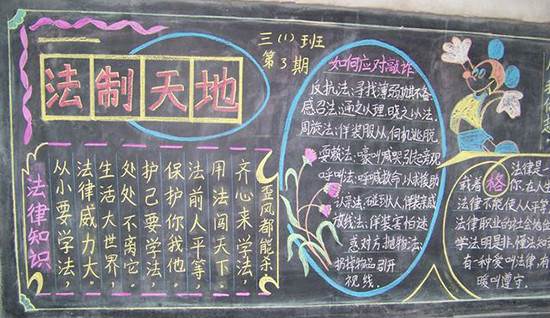 法制天地
三(1)班
第3期
法律知识
从小要学法,
法律威力大。
生活大世界,
处处不离它。
护己要学法
保护你我他。
法前人平等,
用法闯天下。
齐心来学法,
歪风都能杀
如何应对敲诈
反抗法:寻找薄弱地
感召法:通之以理,晓之以法,
周旋法:佯装服从伺机逃脱
耍赖法:嚎叫喊哭引起旁观
呼叫法:呼喊救命以求援助
认亲法:碰到以人佯装
放线法:佯装害怕迷
惑对方抛物法:
扔掉物品引开
视线.
我若
格
法律是一
你,在人生
法律不能使人人平等
法律职业的社会地位
学法明是非,懂法知
有一种爱叫法律,有
暖叫遵守.